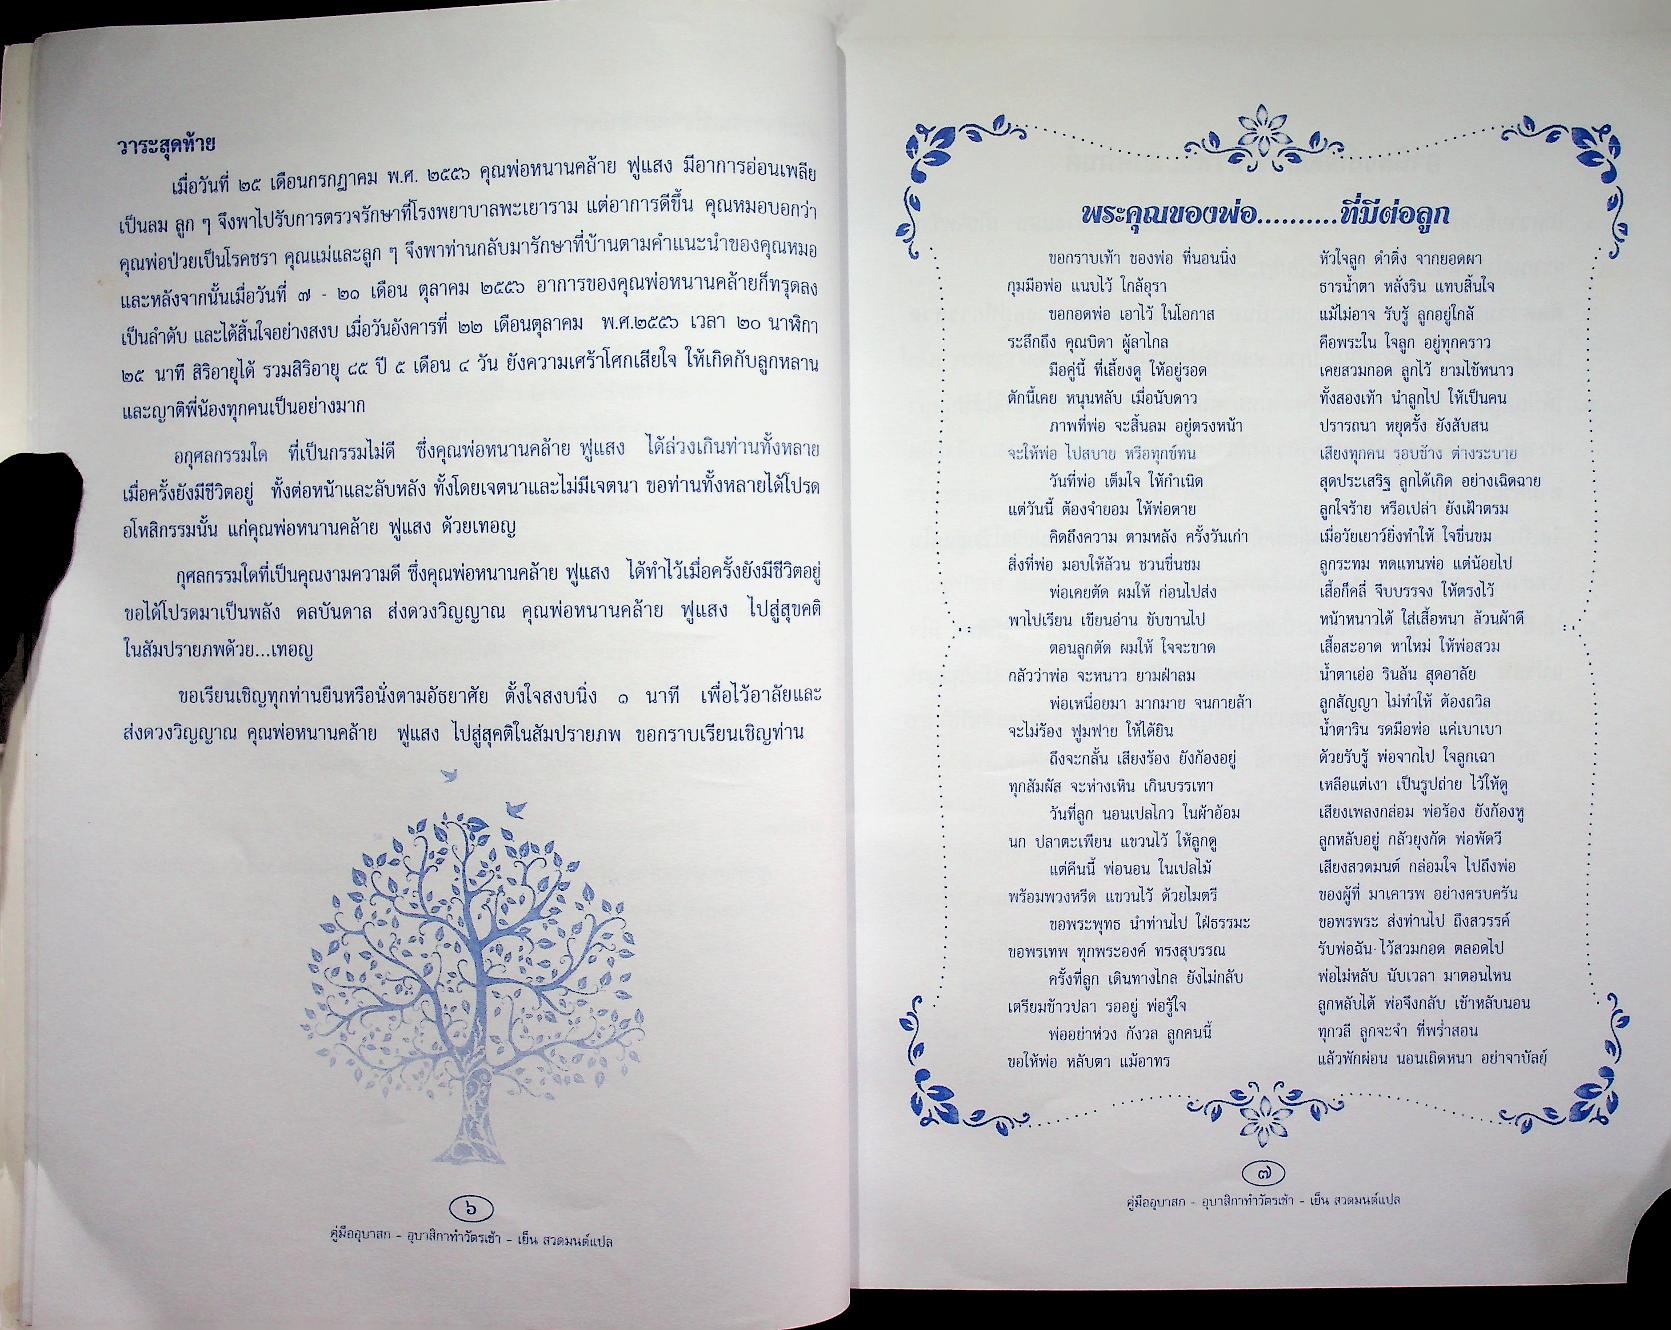 วาระสุดท้าย
เมื่อวันที่ ๒๕ เดือนกรกฎาคม พ.ศ. ๒๕๕๖ คุณพ่อหนานคล้าย ฟูแสง มีอาการอ่อนเพลีย
เป็นลม ลูก ๆ จึงพาไปรับการตรวจรักษาที่โรงพยาบาลพะเยาราม แต่อาการดีขึ้น คุณหมอบอกว่า
คุณพ่อป่วยเป็นโรคชรา คุณแม่และลูก ๆ จึงพาท่านกลับมารักษาที่บ้านตามคำแนะนำของคุณหมอ
และหลังจากนั้นเมื่อวันที่ ๗ - ๒๑ เดือน ตุลาคม ๒๕๕๖ อาการของคุณพ่อหนานคล้ายก็ทรุดลง
เป็นลำดับ และได้สิ้นใจอย่างสงบ เมื่อวันอังคารที่ ๒๒ เดือนตุลาคม พ.ศ.๒๕๕๖ เวลา ๒๐ นาฬิกา
๒๕ นาที สิริอายุได้ รวมสิริอายุ ๘๕ ปี ๕ เดือน ๔ วัน ยังความเศร้าโศกเสียใจ ให้เกิดกับลูกหลาน
และญาติพี่น้องทุกคนเป็นอย่างมาก
อกุศลกรรมใด ที่เป็นกรรมไม่ดี ซึ่งคุณพ่อหนานคล้าย ฟูแสง ได้ล่วงเกินท่านทั้งหลาย
เมื่อครั้งยังมีชีวิตอยู่ ทั้งต่อหน้าและลับหลัง ทั้งโดยเจตนาและไม่มีเจตนา ขอท่านทั้งหลายได้โปรด
อโหสิกรรมนั้น แก่คุณพ่อหนานคล้าย ฟูแสง ด้วยเทอญ
กุศลกรรมใดที่เป็นคุณงามความดี ซึ่งคุณพ่อหนานคล้าย ฟูแสง ได้ทำไว้เมื่อครั้งยังมีชีวิตอยู่
ขอได้โปรดมาเป็นพลัง ดลบันดาล ส่งดวงวิญญาณ คุณพ่อหนานคล้าย ฟูแสง ไปสู่สุขคติ
ในสัมปรายภพด้วย...เทอญ
ขอเรียนเชิญทุกท่านยืนหรือนั่งตามอัธยาศัย ตั้งใจสงบนิ่ง ๑ นาที เพื่อไว้อาลัยและ
ส่งดวงวิญญาณ คุณพ่อหนานคล้าย ฟูแสง ไปสู่สุคติในสัมปรายภพ ขอกราบเรียนเชิญท่าน
๖
คู่มืออุบาสก - อุบาสิกาทำวัตรเช้า - เย็น สวดมนต์แปล
พระคุณของพ่อ..........ที่มีต่อลูก
ขอกราบเท้า ของพ่อ ที่นอนนิ่ง หัวใจลูก ดำดิ่ง จากยอดผา
กุมมือพ่อ แนบไว้ ใกล้อุรา ธารน้ำตา หลั่งริน แทบสิ้นใจ
ขอกอดพ่อ เอาไว้ ในโอกาส แม้ไม่อาจ รับรู้ ลูกอยู่ใกล้
ระลึกถึง คุณบิดา ผู้ลาไกล คือพระใน ใจลูก อยู่ทุกคราว
มือคู่นี้ ที่เลี้ยงดู ให้อยู่รอด เคยสวมกอด ลูกไว้ ยามไข้หนาว
ตักนี้เคย หนุนหลับ เมื่อนับดาว ทั้งสองเท้า นำลูกไป ให้เป็นคน
ภาพที่พ่อ จะสิ้นลม อยู่ตรงหน้า ปรารถนา หยุดรั้ง ยังสับสน
จะให้พ่อ ไปสบาย หรือทุกข์ทน เสียงทุกคน รอบข้าง ต่างระบาย
วันที่พ่อ เต็มใจ ให้กำเนิด สุดประเสริฐ ลูกได้เกิด อย่างเฉิดฉาย
แต่วันนี้ ต้องจำยอม ให้พ่อตาย ลูกใจร้าย หรือเปล่า ยังเฝ้าตรม
คิดถึงความ ตามหลัง ครั้งวันเก่า เมื่อวัยเยาว์ยิ่งทำให้ ใจขื่นขม
สิ่งที่พ่อ มอบให้ล้วน ชวนชื่นชม ลูกระทม ทดแทนพ่อ แต่น้อยไป
พ่อเคยตัด ผมให้ ก่อนไปส่ง เสื้อก็คลี่ จีบบรรจง ให้ตรงไว้
พาไปเรียน เขียนอ่าน ขับขานไป หน้าหนาวได้ ใส่เสื้อหนา ล้วนผ้าดี
ตอนลูกตัด ผมให้ ใจจะขาด เสื้อสะอาด หาใหม่ ให้พ่อสวม
กลัวว่าพ่อ จะหนาว ยามฝ่าลม น้ำตาเอ่อ รินล้น สุดอาลัย
พ่อเหนื่อยมา มากมาย จนกายล้า ลูกสัญญา ไม่ทำให้ ต้องถวิล
จะไม่ร้อง ฟูมฟาย ให้ได้ยิน น้ำตาริน รดมือพ่อ แค่เบาเบา
ถึงจะกลั้น เสียงร้อง ยังก้องอยู่ ด้วยรับรู้ พ่อจากไป ใจลูกเฉา
ทุกสัมผัส จะห่างเหิน เกินบรรเทา เหลือแต่เงา เป็นรูปถ่าย ไว้ให้ดู
วันที่ลูก นอนเปลไกว ในผ้าอ้อม เสียงเพลงกล่อม พ่อร้อง ยังก้องหู
นก ปลาตะเพียน แขวนไว้ ให้ลูกดู ลูกหลับอยู่ กลัวยุงกัด พ่อพัดวี
แต่คืนนี้ พ่อนอน ในเปลไม้ เสียงสวดมนต์ กล่อมใจ ไปถึงพ่อ
พร้อมพวงหรีด แขวนไว้ ด้วยไมตรี ของผู้ที่ มาเคารพ อย่างครบครัน
ขอพระพุทธ นำท่านไป ใฝ่ธรรมะ ขอพรพระ ส่งท่านไป ถึงสวรรค์
ขอพรเทพ ทุกพระองค์ ทรงสุบรรณ รับพ่อฉัน ไว้สวมกอด ตลอดไป
ครั้งที่ลูก เดินทางไกล ยังไม่กลับ พ่อไม่หลับ นับเวลา มาตอนไหน
เตรียมข้าวปลา รออยู่ พ่อรู้ใจ ลูกหลับได้ พ่อจึงกลับ เข้าหลับนอน
พ่ออย่าห่วง กังวล ลูกคนนี้ ทุกวลี ลูกจะจำ ที่พร่ำสอน
ขอให้พ่อ หลับตา แม้อาทร แล้วพักผ่อน นอนเถิดหนา อย่าจาบัลย์
๗
คู่มืออุบาสก - อุบาสิกาทำวัตรเช้า - เย็น สวดมนต์แปล